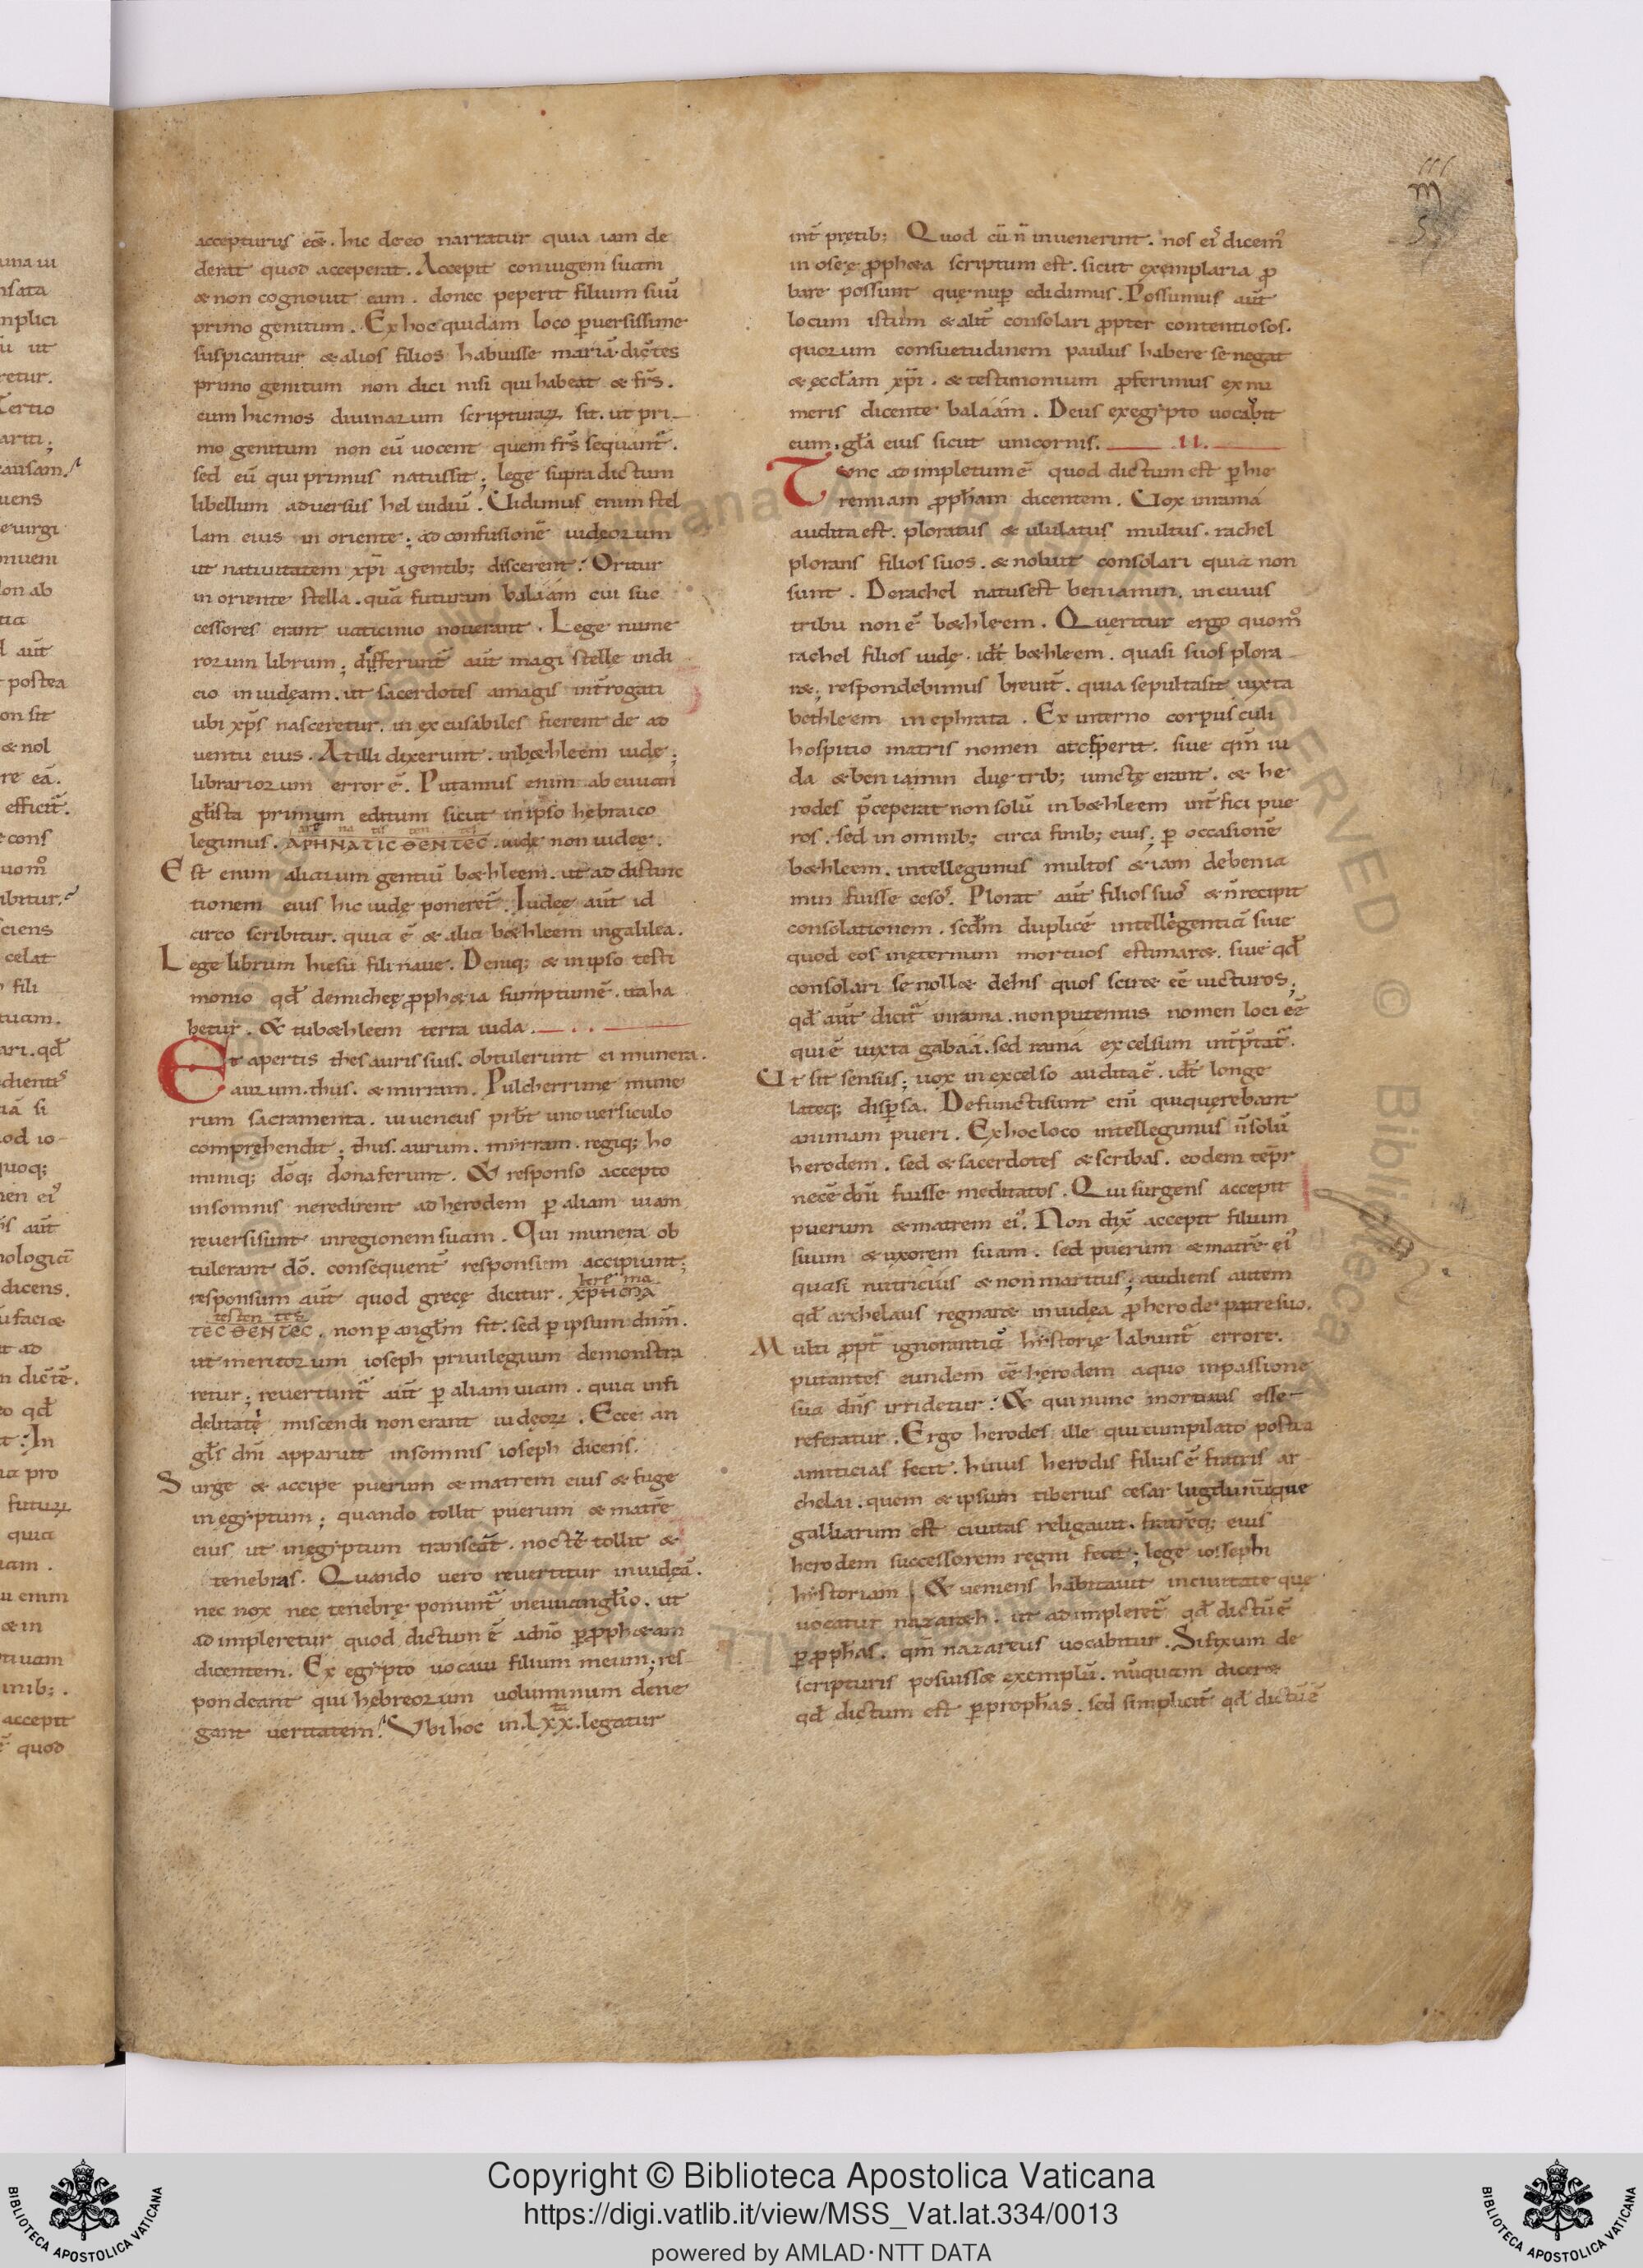 accepturus eēt. hic de eo narratur quia iam de
derat quod acceperat. Accepit coniugem suam
& non cognouit eam. donec peperit filium suū
primo genitum. Ex hoc quidam loco ꝑuersissime
suspicantur & alios filios habuisse mariā. dicētes
primo genitum non dici nisi qui habeat & fr̄s.
cum hic mos diuinarum scripturaꝝ sit. ut pri-
mo genitum non eū uocent quem fr̄s sequant̄.
sed eū qui primus natus sit; lege supra dictum
libellum aduersus heluidiū. Uidimus enim stel
lam eius in oriente; ad confusionē iudeorum
ut natiuitatem xp̄i a gentib; discerent. Oritur
in oriente stella. quā futuram balaam cui suc
cessores erant uaticinio nouerant. Lege nume
rorum librum; differunt̄ aut̄ magi stelle indi
cio in iudęam. ut sacerdotes a magis int̄rogati
ubi xp̄s nasceretur. in excusabiles fierent de ad
uentu eius. At illi dixerunt. in b&hleem iude;
librariorum error ē. Putamus enim ab euuan
gl̄ista primum editum sicut in ipso hebraico
legimus. iudę non iudee.
Est enim aliarum gentiū b&hleem. ut ad distinc
tionem eius hic iudę poneret̄. Iudee aut̄ id
circo scribitur. quia ē & alia b&hleem in galilea.
Lege librum hiesu fili naue. Deniq; & in ipso testi
monio qd̄ de michęę ꝓph&ia sumptum ē. ita ha
betur. & tu b&hleem terra iuda.
Et apertis thesauris suis. obtulerunt ei munera.
aurum. thus. & mirram. Pulcherrime mune
rum sacramenta. iuuencus prb̄t uno uersiculo
compręhendit; thus. aurum. myrram. regiq; ho
miniq; dōq; dona ferunt. & responso accepto
in somnis ne redirent ad herodem ꝑ aliam uiam
reuersi sunt in regionem suam. Qui munera ob
tulerant dō. consequent̄ responsum accipiunt;
responsum aut̄ quod grecę dicitur.
non ꝑ angl̄m fit. sed ꝑ ipsum dn̄m.
ut meritorum ioseph priuilegium demonstra
retur; reuertunt̄ aut̄ ꝑ aliam uiam. quia infi
delitatę miscendi non erant iudęoꝝ. Ecce an
gl̄s dn̄i apparuit in somnis ioseph dicens.
Surge & accipe puerum & matrem eius & fuge
in egyptum; quando tollit puerum & matrē
eius ut in egyptum transeat. nocte tollit &
tenebras. Quando uero reuertitur in iudęā.
nec nox nec tenebrę ponunt̄ in euuangl̄io. ut
ad impleretur quod dictum ē a dn̄o ꝑ ꝓph&am
dicentem. Ex egypto uocaui filium meum; res-
pondeant qui hebreorum uoluminum dene
gant ueritatem. Vbi hoc in .Lxx. legatur
int̄ pretib; Quod cū n̄ inuenerint. nos eis dicem᾽
in oseę ꝓph&a scriptum est. sicut exemplaria ꝓ
bare possunt quę nuꝑ edidimus. Possumus aut̄
locum istum & alit̄ consolari ꝓpter contentiosos.
quorum consuetudinem paulus habere se negat
& ęccl̄am xp̄i. & testimonium ꝓferimus ex nu
meris dicente balaam. Deus ex egypto uocabit
eum. gl̄a eius sicut unicornis. II.
Tunc ad impletum ē quod dictum est ꝑ hie
remiam ꝓph̄am dicentem. Uox in rama
audita est. ploratus & ululatus multus. rachel
plorans filios suos. & noluit consolari quia non
sunt. De rachel natus est beniamin. in cuius
tribu non ē b&hleem. Queritur ergo quom̊
rachel filios iudę. id ē b&hleem. quasi suos plora
r&; respondebimus breuit̄. quia sepulta sit iuxta
bethleem in ephrata. Ex interno corpusculi
hospitio matris nomen acceperit. siue qm̄ iu
da & beniamin duę trib; iunctę erant. & he
rodes p̄ceperat non solū in b&hleem int̄fici pue
ros. sed in omnib; circa finib; eius; ꝑ occasionē
b&hleem. intellegimus multos &iam de benia
min fuisse cesos. Plorat aut̄ filios suos & n̄ recipit
consolationem. scd̄m duplicē intellegentiā siue
quod eos in ęternum mortuos estimar&. siue qd̄
consolari se noll& de his quos scir& eē uicturos;
qd̄ aut̄ dicit̄ in rama. non putemus nomen loci eē
qui ē iuxta gabaa. sed rama excelsum int̄p̄tat̄.
Ut sit sensus; uox in excelso audita ē. id ē longe
lateq; disꝑsa. Defuncti sunt eni qui querebant
animam pueri. Ex hoc loco intellegimus n̄ solū
herodem. sed & sacerdotes & scribas. eodem tēpr
necē dn̄i fuisse meditatos. Qui surgens accepit
puerum & matrem ei᾽. Non dix̄ accepit filium
suum & uxorem suam. sed puerum & matrē ei᾽
quasi nutricius & non maritus; audiens autem
qd̄ archelaus regnar& in iudęa ꝓ herode patre suo.
Multi ꝓpt̄ ignorantiā hystorię labunt̄ errore.
putantes eundem eē herodem a quo in passione
sua dn̄s irridetur. & qui nunc mortuus esse
referatur. Ergo herodes ille qui cum pilato postea
amicicias fecit. huius herodis filius ē fratris ar
chelai. quem & ipsum tiberius cesar lugdunū que
galliarum est ciuitas religauit. fratrēq; eius
herodem successorem regni fecit; lege iosephi
hystoriam. & ueniens habitauit in ciuitate quę
uocatur nazar&h. ut ad impleret̄ qd̄ dictū ē
ꝑ ꝓph̄as. qm̄ nazareus uocabitur. Si fixum de
scripturis posuiss& exemplū. nūquam dicer&
qd̄ dictum est ꝑ proph̄as. sed simplicit̄ qd̄ dictū ē
Copyright © Biblioteca Apostolica Vaticana
https://digi.vatlib.it/view/MSS_Vat.lat.334/0013
powered by AMLAD·NTT DATA